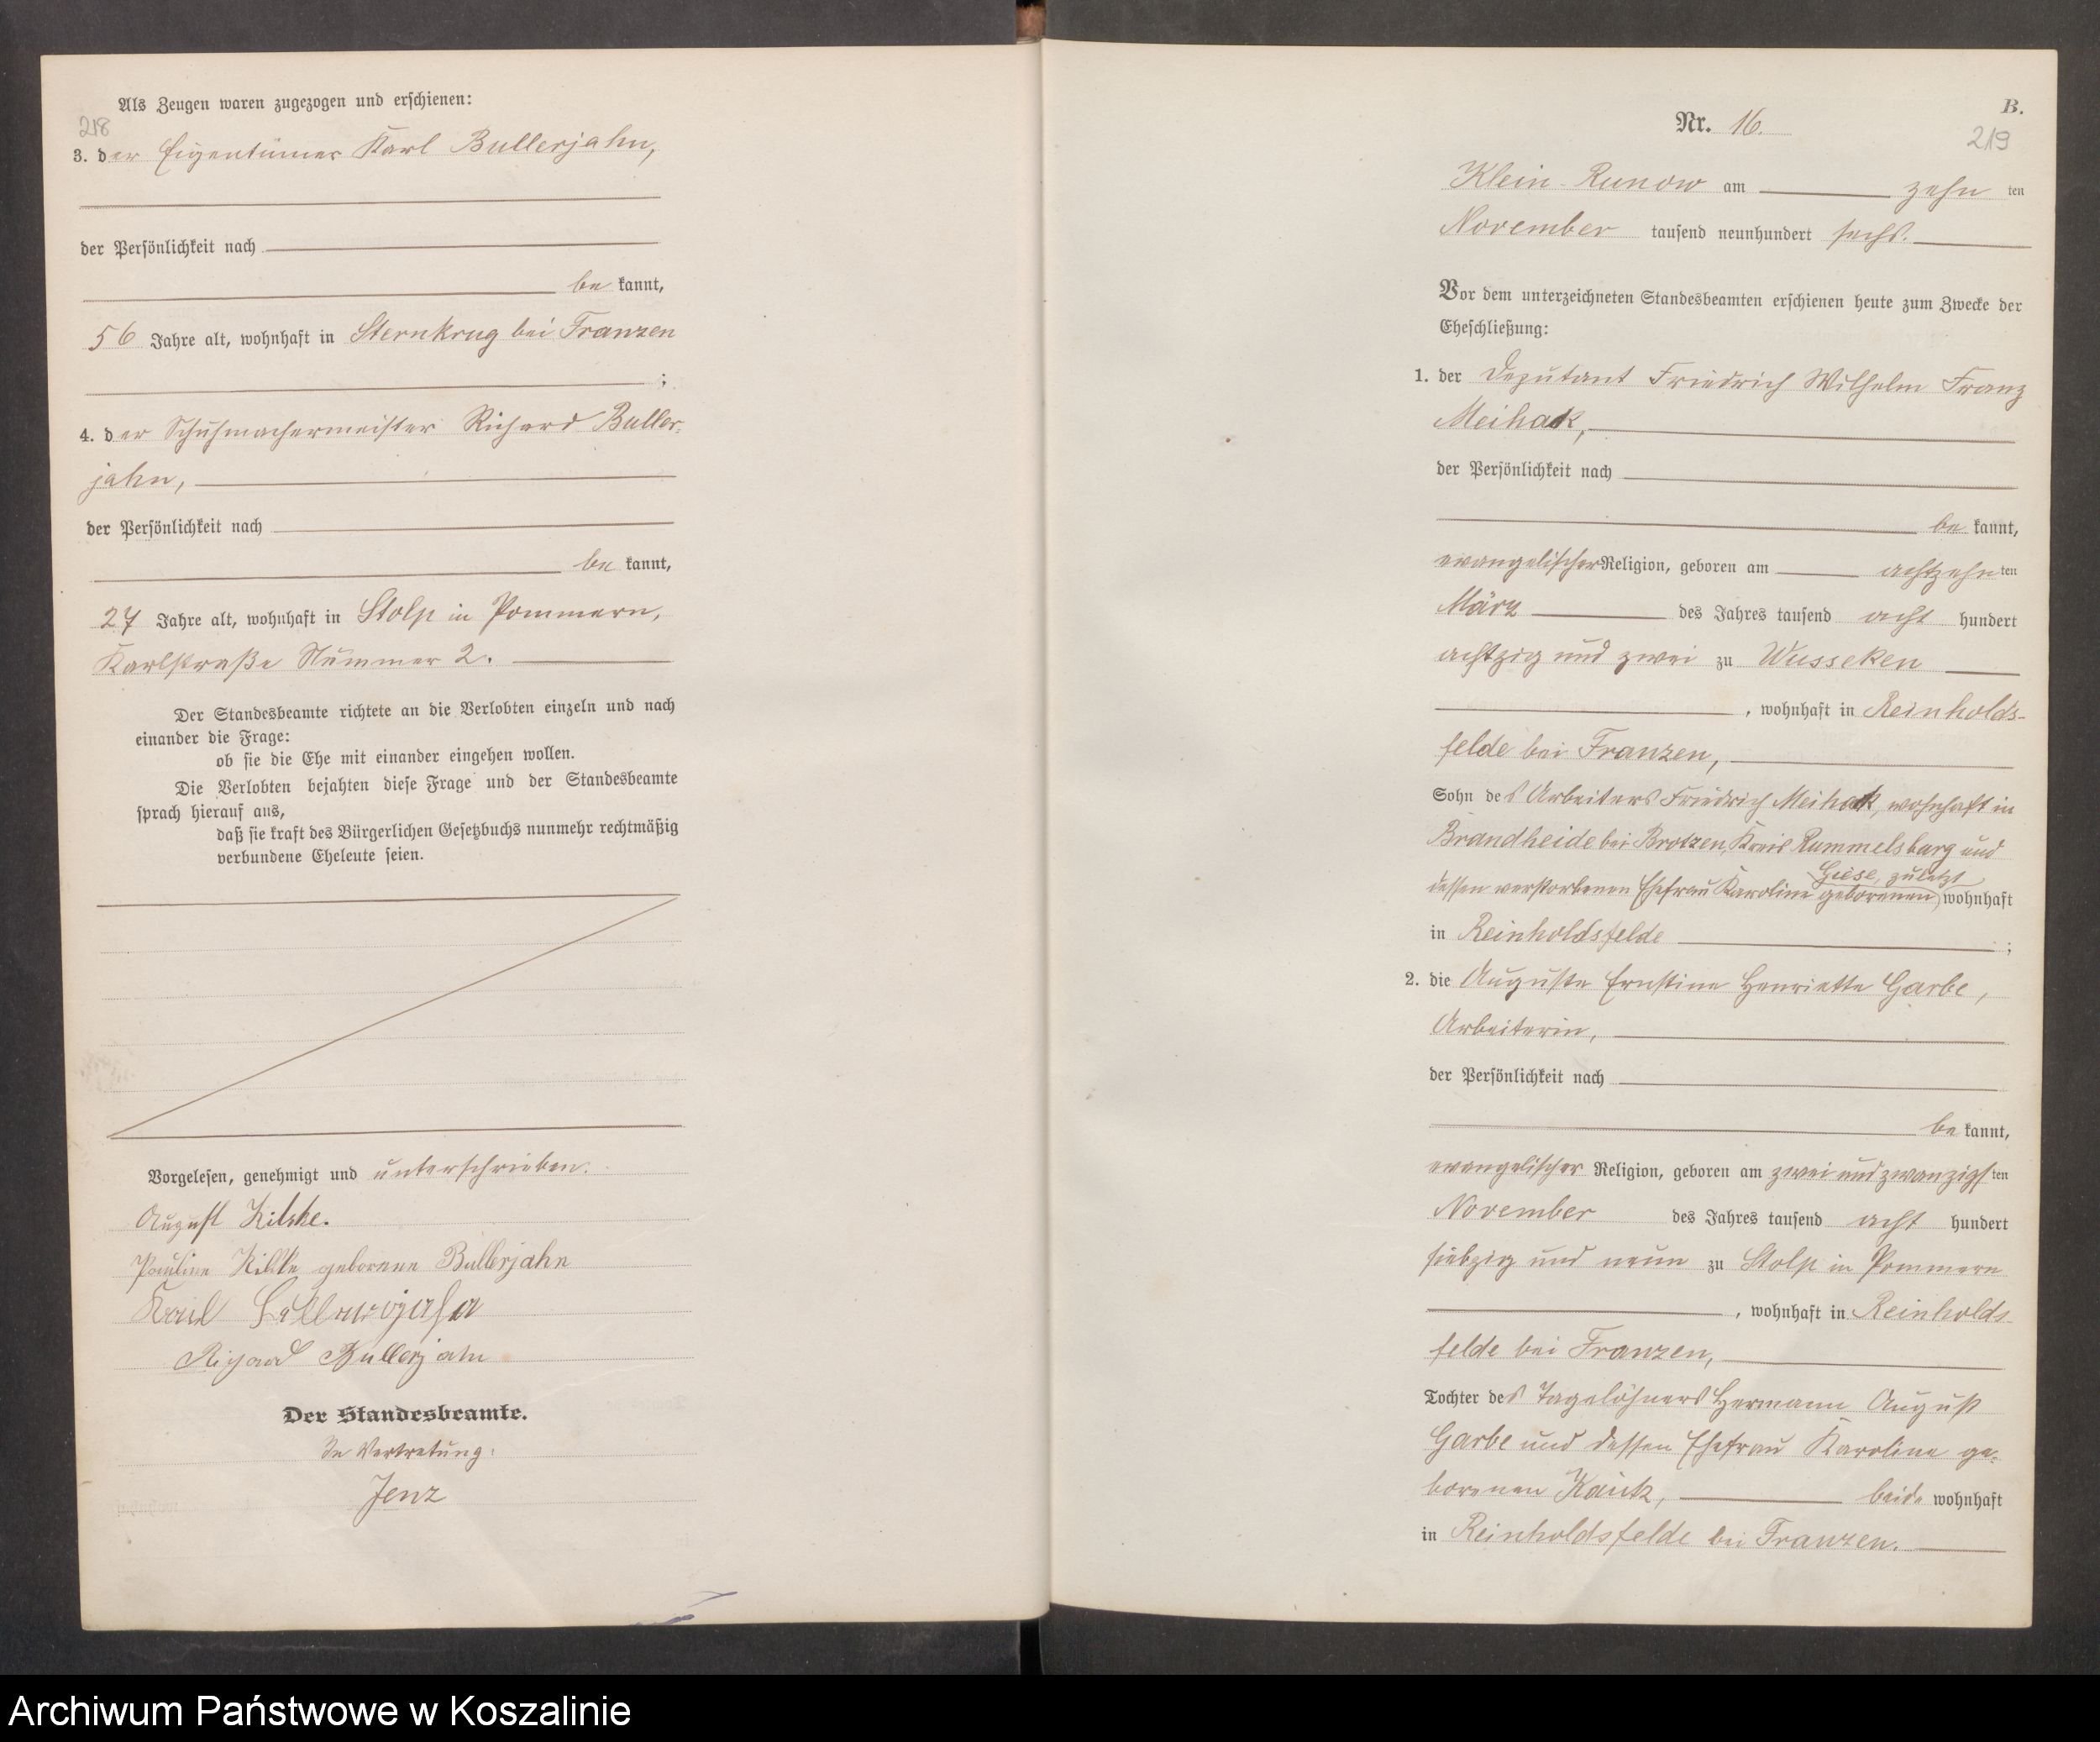 Als Zeugen waren zugezogen und erschienen:
218
3. der Eigentümer Karl Bullerjahn,
der Persönlichkeit nach
be kannt,
56 Jahre alt, wohnhaft in Sternkrug bei Franzen
;
4. der Schuhmachermeister Richard Buller-
jahn,
der Persönlichkeit nach
be kannt,
27 Jahre alt, wohnhaft in Stolp in Pommern,
Karlstraße Nummer 2.
Der Standesbeamte richtete an die Verlobten einzeln und nach
einander die Frage:
ob sie die Ehe mit einander eingehen wollen.
Die Verlobten bejahten diese Frage und der Standesbeamte
sprach hierauf aus,
daß sie kraft des Bürgerlichen Gesetzbuchs nunmehr rechtmäßig
verbundene Eheleute seien.
Vorgelesen, genehmigt und unterschrieben.
August
Pauline geborene Bullerjahn
Karl Bullerjahn
Richard Bullerjahn
Der Standesbeamte.
In Vertretung:
Jenz
B.
Nr. 16.
219
Klein-Runow am zehn ten
November tausend neunhundert sechs.
Vor dem unterzeichneten Standesbeamten erschienen heute zum Zwecke der
Eheschließung:
1. der Deputant Friedrich Wilhelm Franz
Meihak,
der Persönlichkeit nach
be kannt,
evangelischer Religion, geboren am achtzehn ten
März des Jahres tausend acht hundert
achtzig und zwei zu Wusseken
, wohnhaft in Reinholds-
felde bei Franzen,
Sohn des Arbeiters Friedrich Meihak, wohnhaft in
Brandheide bei Brotzen, Kreis Rummelsburg und
Giese, zuletzt
dessen verstorbenen Ehefrau Karoline geborenen wohnhaft
in Reinholdsfelde ;
2. die Auguste Ernstine Henriette Garbe,
Arbeiterin,
der Persönlichkeit nach
be kannt,
evangelischer Religion, geboren am zwei und zwanzigs ten
November des Jahres tausend acht hundert
siebzig und neun zu Stolp in Pommern
, wohnhaft in Reinholds-
felde bei Franzen,
Tochter des Tagelöhners Hermann August
Garbe und dessen Ehefrau Karoline ge-
borenen Kautz, beide wohnhaft
in Reinholdsfelde bei Franzen.
Archiwum Państwowe w Koszalinie